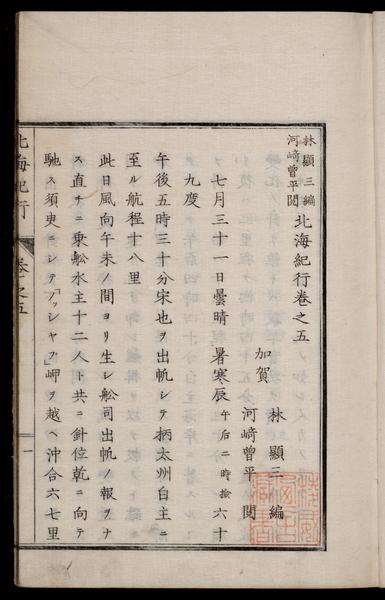 林顯三編
河﨑曾平閲
北海紀行卷之五
加賀
林顯三編
河﨑曾平閲
七月三十一日曇晴暑寒辰午后二時撿六十
九度
午後五時三十分宋也ヲ出帆シテ柄太州白主ニ
至ル航程十八里
此日風向午未ノ間ヨリ生シ舩司出帆ノ報ヲナ
ス直チニ乗舩水主十二人ト共ニ針位乾ニ向テ
馳ス須臾ニシテ「ノッシャフ」岬ヲ越ヘ沖合六七里
北海紀行
卷之五
一